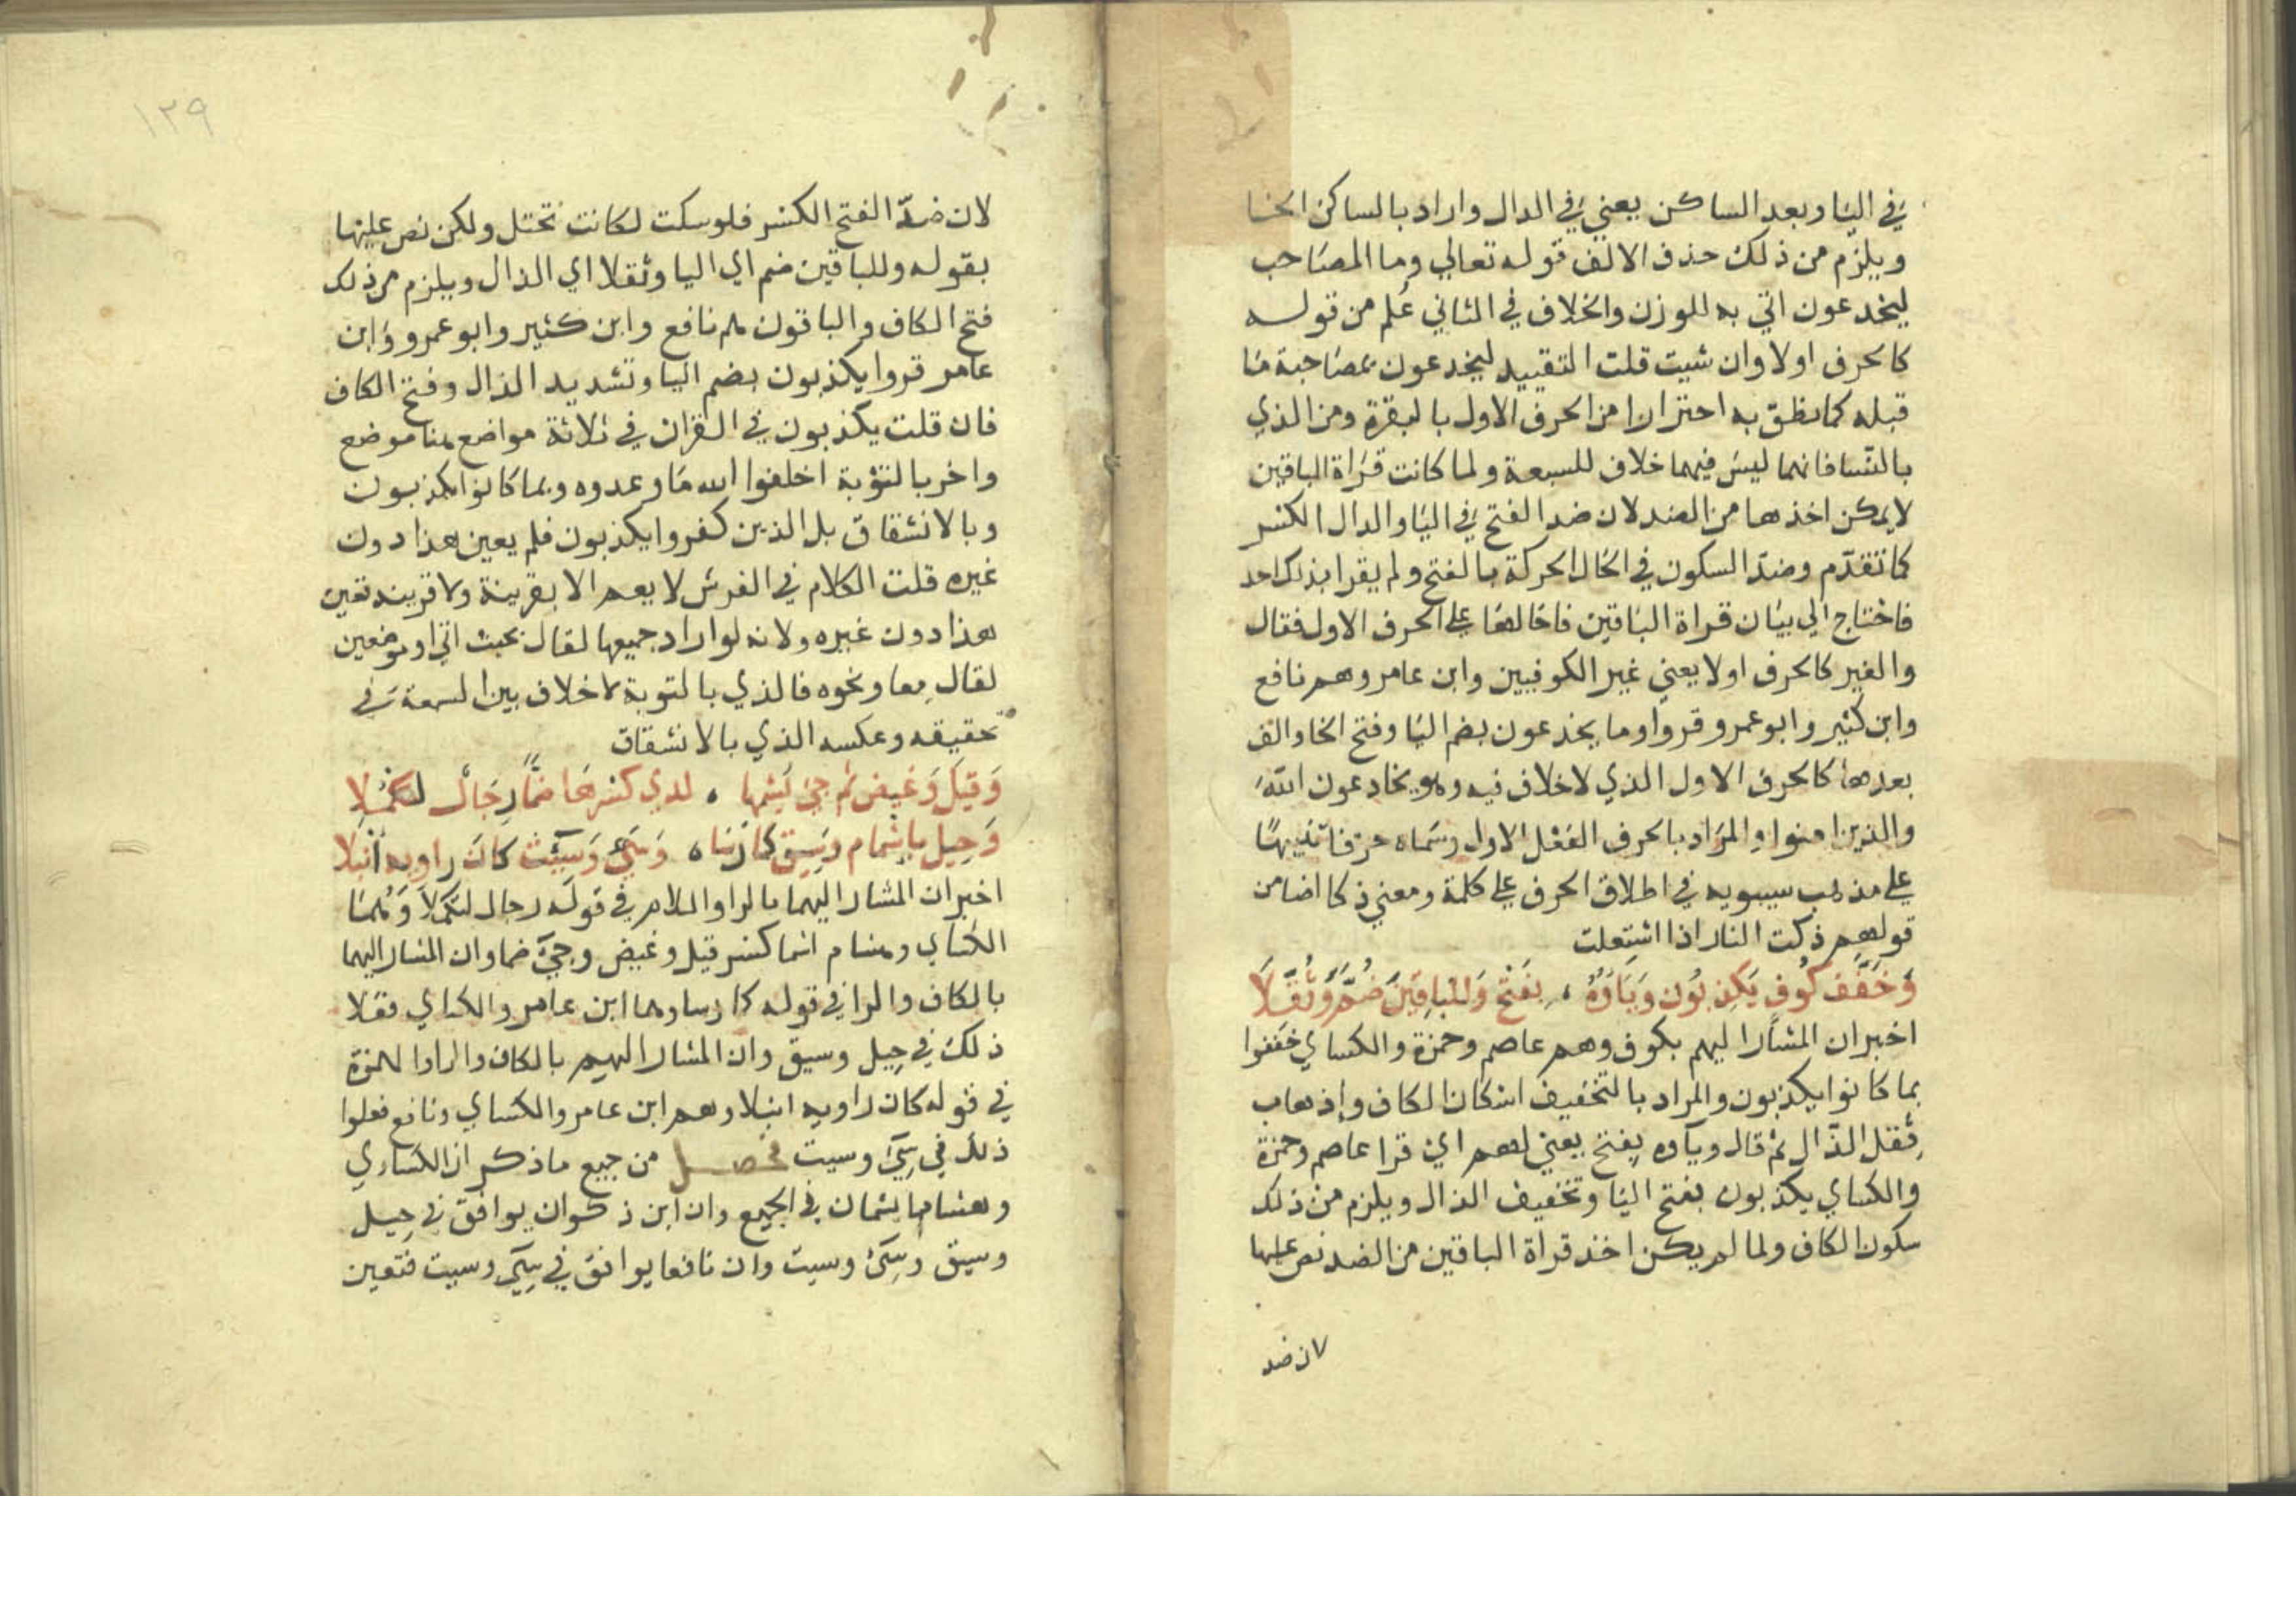 في اليا وبعد الساكن يعني في الدال واراد بالساكن الخا
ويلزم من ذلك حذف الالف قوله تعالي وما المصاحب
ليخدعون اتي به للوزن والخلاف في الثاني عُلم من قوله
كالحرف اولا وان شيت قلت التقييد ليخدعون بمصاحبة مَا
قبله كما نطق به احترازا من الحرف الاول بالبقرة ومن الذي
بالنسا فانهما ليسَ فيهما خلاف للسبعة ولما كانت قراة الباقين
لا يمكن اخذها من الضد لان ضد الفتح في اليا والدال الكسر
كما تقدّم وضدّ السكون في الخال الحركة بالفتح ولم يقرا بذلك احد
فاحتاج الي بيَان قراة البَاقين فاحالهَا علي الحرف الاول فقال
والغير كالحرف اولا يعني غير الكوفيين وابن عامر وهم نافع
وابن كثير وابو عمرو قروا وما يخدعون بضم اليَا وفتح الخا والف
بعدهَا كالحرف الاول الذي لا خلاف فيه وهو يخادعون اللّه
والذين امنوا والمرَاد بالحرف الفعْل الاول وسَماه حرفا تنبيهًا
علي مذهب سيبويه في اطلاق الحرف علي كلمة ومعني ذكا اضا من
قولهم ذكت النار اذا اشتعلت
وَخَفَّفَ كُوفٍ يَكذِبُون وَيَاؤهُ ، بِفَتْح وَللبَاقِينَ ضُمَّ وَثُقِّلَا
اخبر ان المشَارا ليهم بكوف وهم عاصم وحمزة والكساي خَففوا
بما كانوا يكذبون والمراد بالتخفيف اسْكان الكاف وإذهاب
ثقل الذّال ثم قال وياوه بفتح يعني لهم اي قرا عاصم وحمزة
والكساي يكذبون بفتح اليَا وتخفيف الذال ويلزم من ذلك
سكون الكاف ولما لم يكن اخذ قراة الباقين من الضد نص عليها
لان ضد
١٢٩
لان ضدّ الفتح الكسر فلو سكت لكانت تختل ولكن نص عليها
بقوله وللباقين ضم اي اليا وثقلا اي الذال ويلزم من ذلك
فتح الكاف والباقون هم نافع وابن كثير وابو عمرو وابن
عامر قروا يكذبون بضم اليا وتشديد الذال وفتح الكاف
فان قلت يكذبون في القران في ثلاثة مواضع هنا موضع
واخر بالتوبة اخلفوا الله مَا وعدوه وبما كانوا يكذبون
وبالانشقاق بل الذين كفروا يكذبون فلم يعين هذا دون
غيره قلت الكلام في الفرش لا يعم الا بقرينة ولا قرينه تعين
هذا دون غيره ولانه لو اراد جميعها لقال بحيث اتي او موضعين
لقال معا ونحوه فالذي بالتوبة لا خلاف بين السبعة في
تحقيقه وعكسه الذي بالانشقاق
وَقيلَ وَغيضَ ثم جيَ يُشِمها ، لدي كسْرهَا ضمًّا رجَال لتكْمُلا
وَحيل باشمام وسيق كما رَسَا ، وَسيَ وَسيئَت كانَ راويه أنبَلا
اخبر ان المشار اليهما بالرا واللام في قوله رجال لتكملا وَهُمَا
الكساي وهشام اشما كسر قيل وغيض وجيَ ضما وان المشار اليهما
بالكاف والرا في قوله كما رسا وهما ابن عامر والكساي فعلا
ذلك في حِيل وسيق وان المشار اليهم بالكاف والرا والهمزة
في قوله كان راويه انبلا وهم ابن عامر والكساي ونافع فعلوا
ذلك في سِيَ وسيت فحصل من جميع ما ذكر ان الكسَاي
وهشاما يشمان في الجميع وان ابن ذكوان يوافق في حِيل
وسيق وسِيَ وسيت وان نافعا يوافق في سِيَ وسيت فتعين